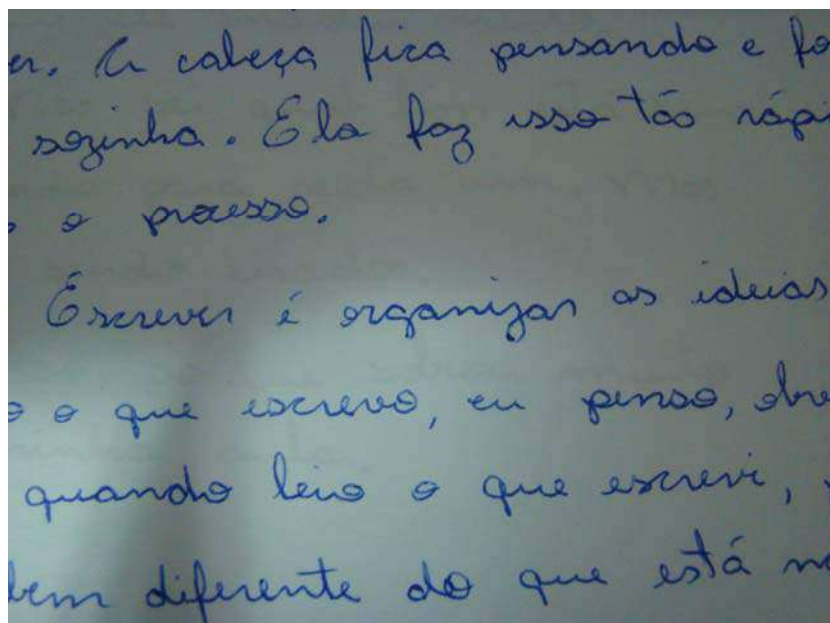 er. A cabeça fica pensando e fo
sozinha. Ela faz isso tão rápi
o processo.
Escrever é organizar as ideias
o que escrevo, eu penso, obre
quando leio o que escrevi,
bem diferente do que está